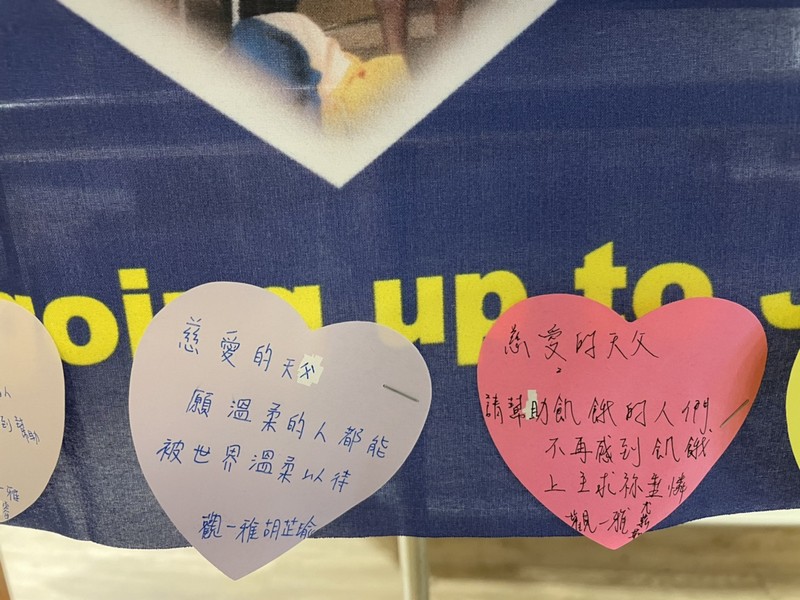 going up to J
慈愛的天父
願溫柔的人都能
被世界溫柔以待
觀一雅胡芷瑜
慈愛的天父
請幫助飢餓的人們
不再感到飢餓
上主求祢垂憐
觀一雅
到幫助
一雅